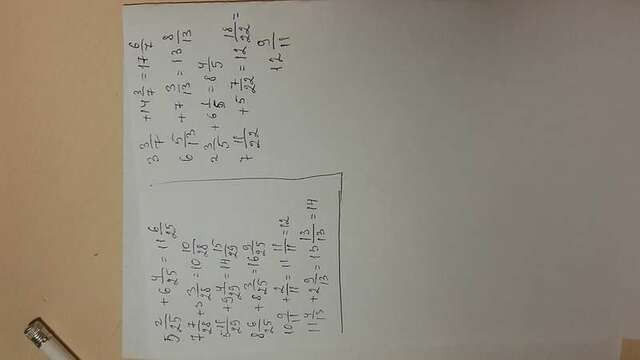 5 2/25 + 6 4/25 = 11 6/25
7 7/28 + 3 3/28 = 10 10/28
5 11/29 + 9 4/29 = 14 15/29
8 6/25 + 8 3/25 = 16 9/25
10 9/11 + 2/11 = 11 11/11 = 12
11 4/13 + 2 9/13 = 13 13/13 = 14
3 3/7 + 14 3/7 = 17 6/7
6 5/13 + 7 3/13 = 13 8/13
2 3/5 + 6 1/5 = 8 4/5
7 11/22 + 5 7/22 = 12 18/22 =
12 9/11